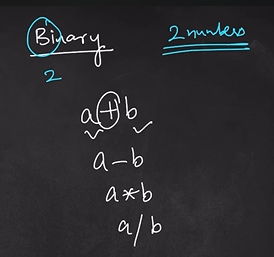 Binary
2 numbers
2
a+b
a-b
a*b
a/b